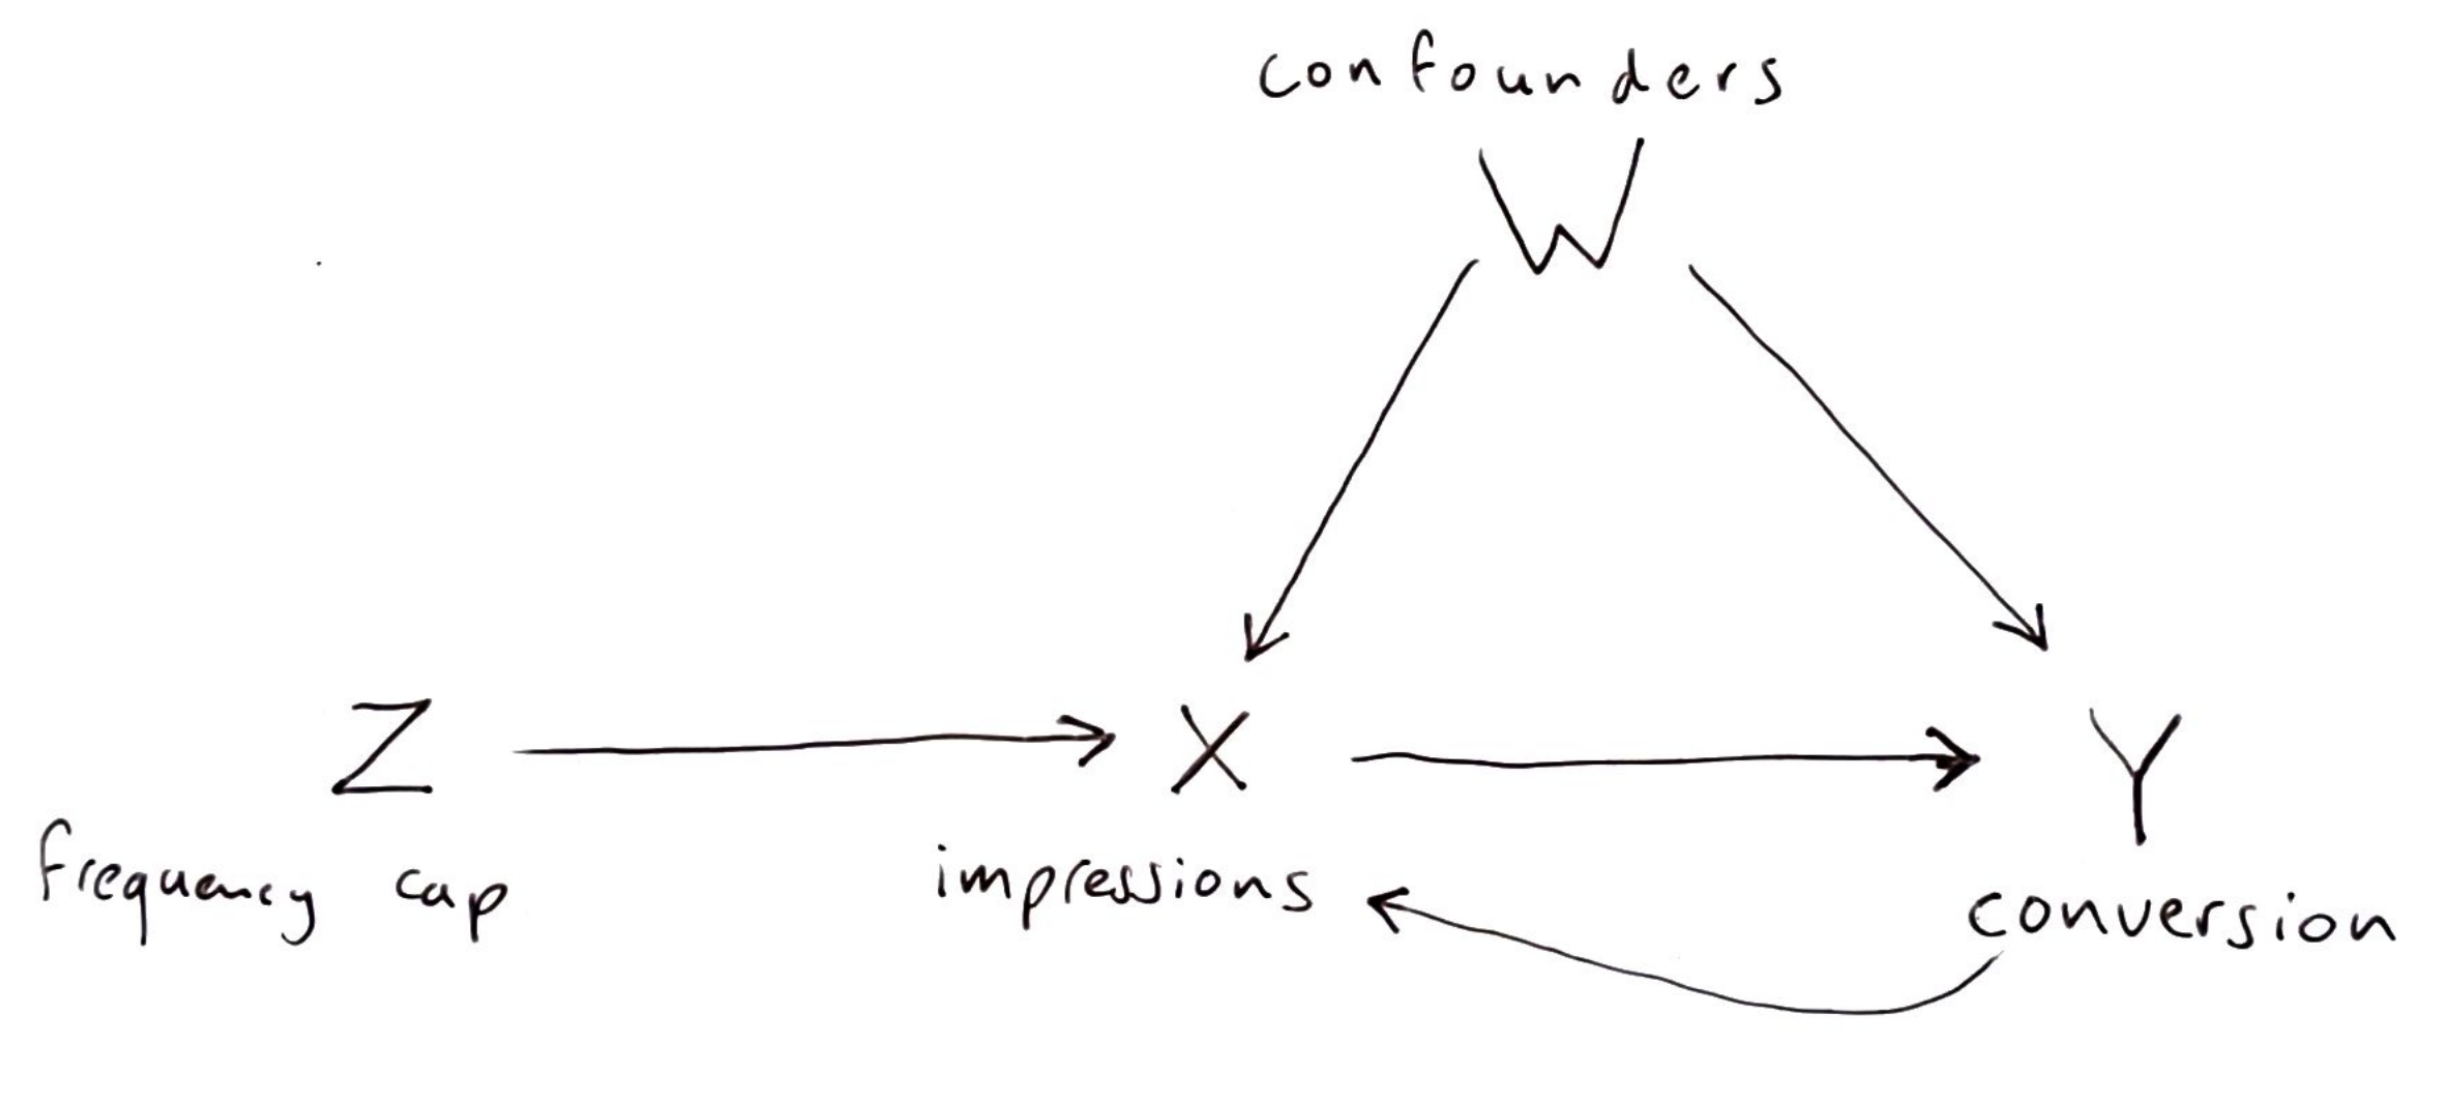 confounders
W
Z X Y
frequency cap impressions conversion